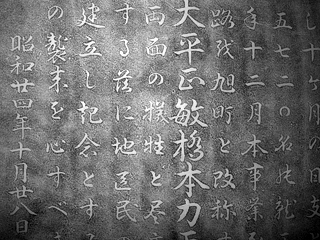 し十ヶ月の回支
五七二〇名純就
年十二月本事業
路線旭町と改称す
大平正敏橋本力正
両面の犠牲と尽
する茲に地区民
建立し記念とす
の襲来を心すべ
昭和廿四年十月廿八日